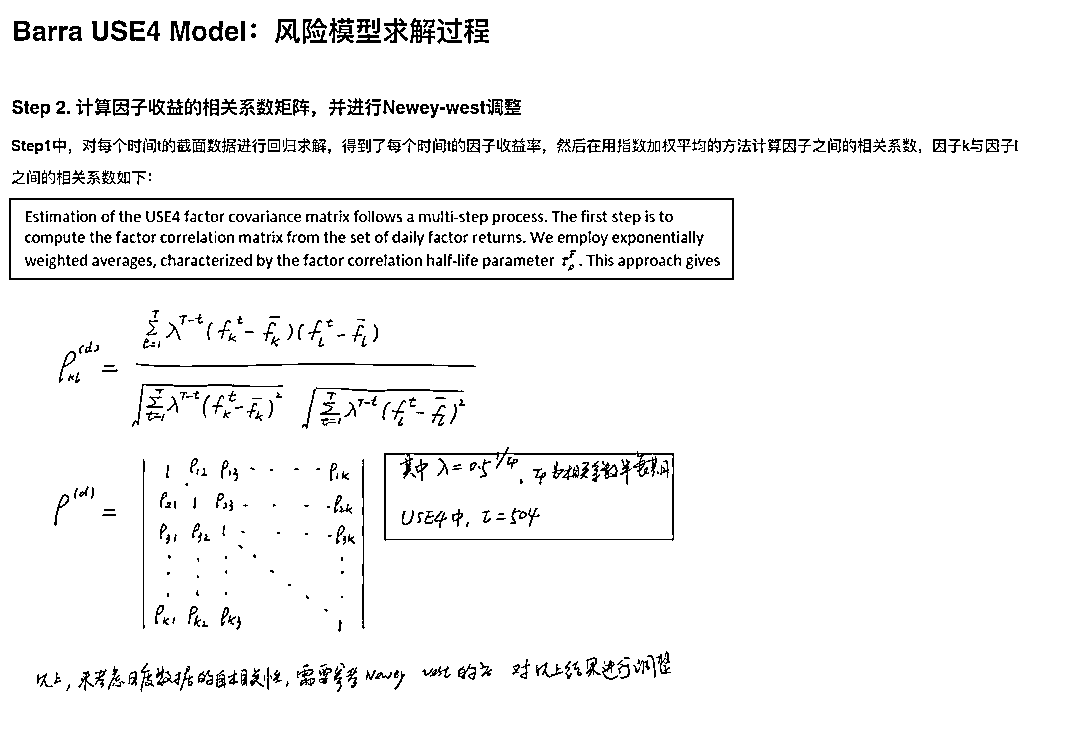 Barra USE4 Model：风险模型求解过程
Step 2. 计算因子收益的相关系数矩阵，并进行Newey-west调整
Step1中，对每个时间t的截面数据进行回归求解，得到了每个时间t的因子收益率，然后在用指数加权平均的方法计算因子之间的相关系数，因子k与因子l
之间的相关系数如下：
Estimation of the USE4 factor covariance matrix follows a multi-step process. The first step is to
compute the factor correlation matrix from the set of daily factor returns. We employ exponentially
weighted averages, characterized by the factor correlation half-life parameter τ_ρ^F. This approach gives
ρ_{kl}^{(d)} = \frac{\sum_{t=1}^{T} λ^{T-t}(f_k^t - \bar{f}_k)(f_l^t - \bar{f}_l)}{\sqrt{\sum_{t=1}^{T} λ^{T-t}(f_k^t - \bar{f}_k)^2} \sqrt{\sum_{t=1}^{T} λ^{T-t}(f_l^t - \bar{f}_l)^2}}
ρ^{(d)} =
1 ρ_{12} ρ_{13} · · · · ρ_{1k}
ρ_{21} 1 ρ_{23} · · · · ρ_{2k}
ρ_{31} ρ_{32} 1 · · · · ρ_{3k}
ρ_{k1} ρ_{k2} ρ_{k3} 1
其中 λ = 0.5^{1/τ_ρ}, τ_ρ为相关系数半衰期
USE4中, τ = 504
以上, 未考虑日度数据的自相关性, 需要参考 Newey west 的 对以上结果进行调整